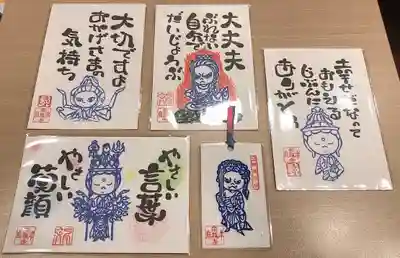 大切ですよ
おかげさまの
気持ち
大丈夫
自然で
だいじょうぶ
幸せだなって
おもえる
じぶんに
ありがとう
やさしい
言葉
やさしい
笑顔